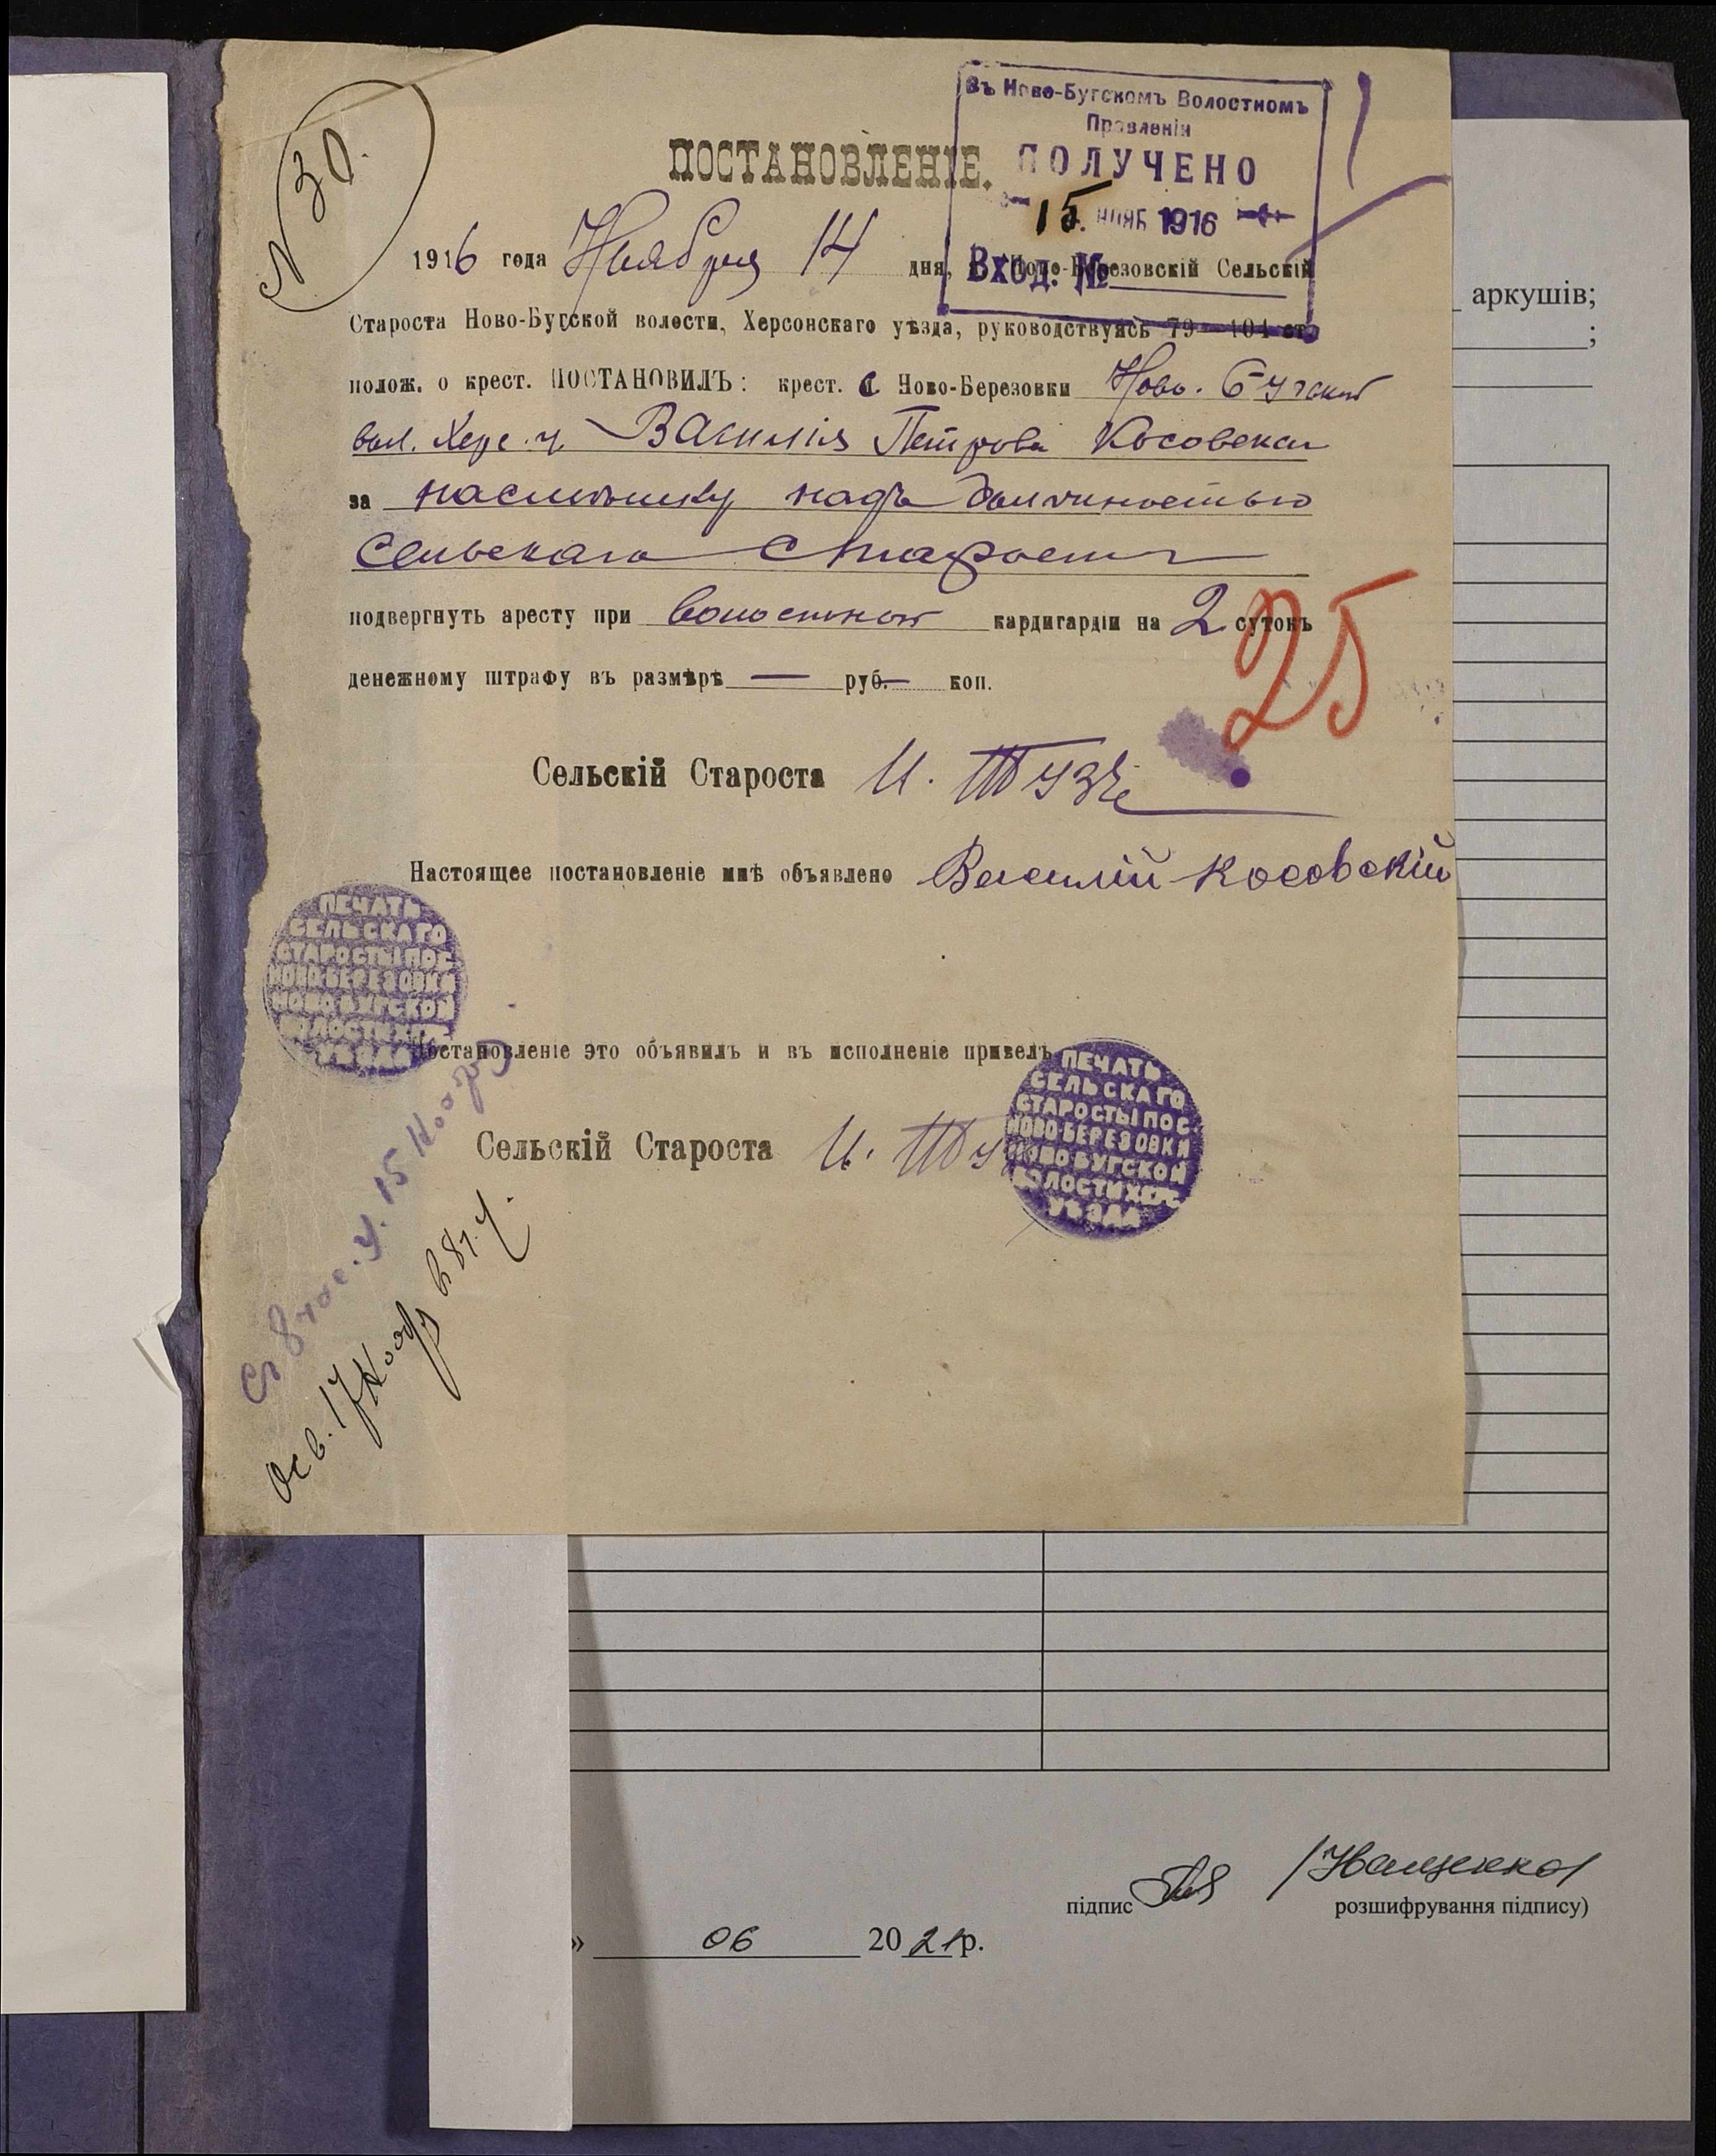 N 30.
Въ Ново-Бугскомъ Волостномъ
Правленіи
ПОЛУЧЕНО
15 НОЯБ 1916
Вход. №
ПОСТАНОВЛЕНІЕ.
1916 года Ноября 14 дня, Ново-Березовскій Сельскій
Староста Ново-Бугской волости, Херсонскаго уѣзда, руководствуясь 79—104 ст.
полож. о крест. ПОСТАНОВИЛЪ: крест. с Ново-Березовки Ново-Бугской
вол. Херс. у. Василія Петрова Косовскаго
за насмѣшку надъ должностью
Сельскаго Старосты
подвергнуть аресту при волостной кардигардіи на 2 сутокъ
денежному штрафу въ размѣрѣ — руб. — коп.
25
Сельскій Староста И.
Настоящее постановленіе мнѣ объявлено Василій Косовскій
ПЕЧАТЬ
СЕЛЬСКАГО
СТАРОСТЫ ПОС.
НОВО-БЕРЕЗОВКИ
НОВО-БУГСКОЙ
ВОЛОСТИ ХЕРС.
УѢЗДА
Постановленіе это объявилъ и въ исполненіе привелъ
Сельскій Староста И.
ПЕЧАТЬ
СЕЛЬСКАГО
СТАРОСТЫ ПОС.
НОВО-БЕРЕЗОВКИ
НОВО-БУГСКОЙ
ВОЛОСТИ ХЕРС.
УѢЗДА
Съ 8 час. у. 15 Ноября
осв. 17 Ноября в 8 ч. у.
аркушів;
;
підпис /Іващенко/
розшифрування підпису)
» 06 2021р.